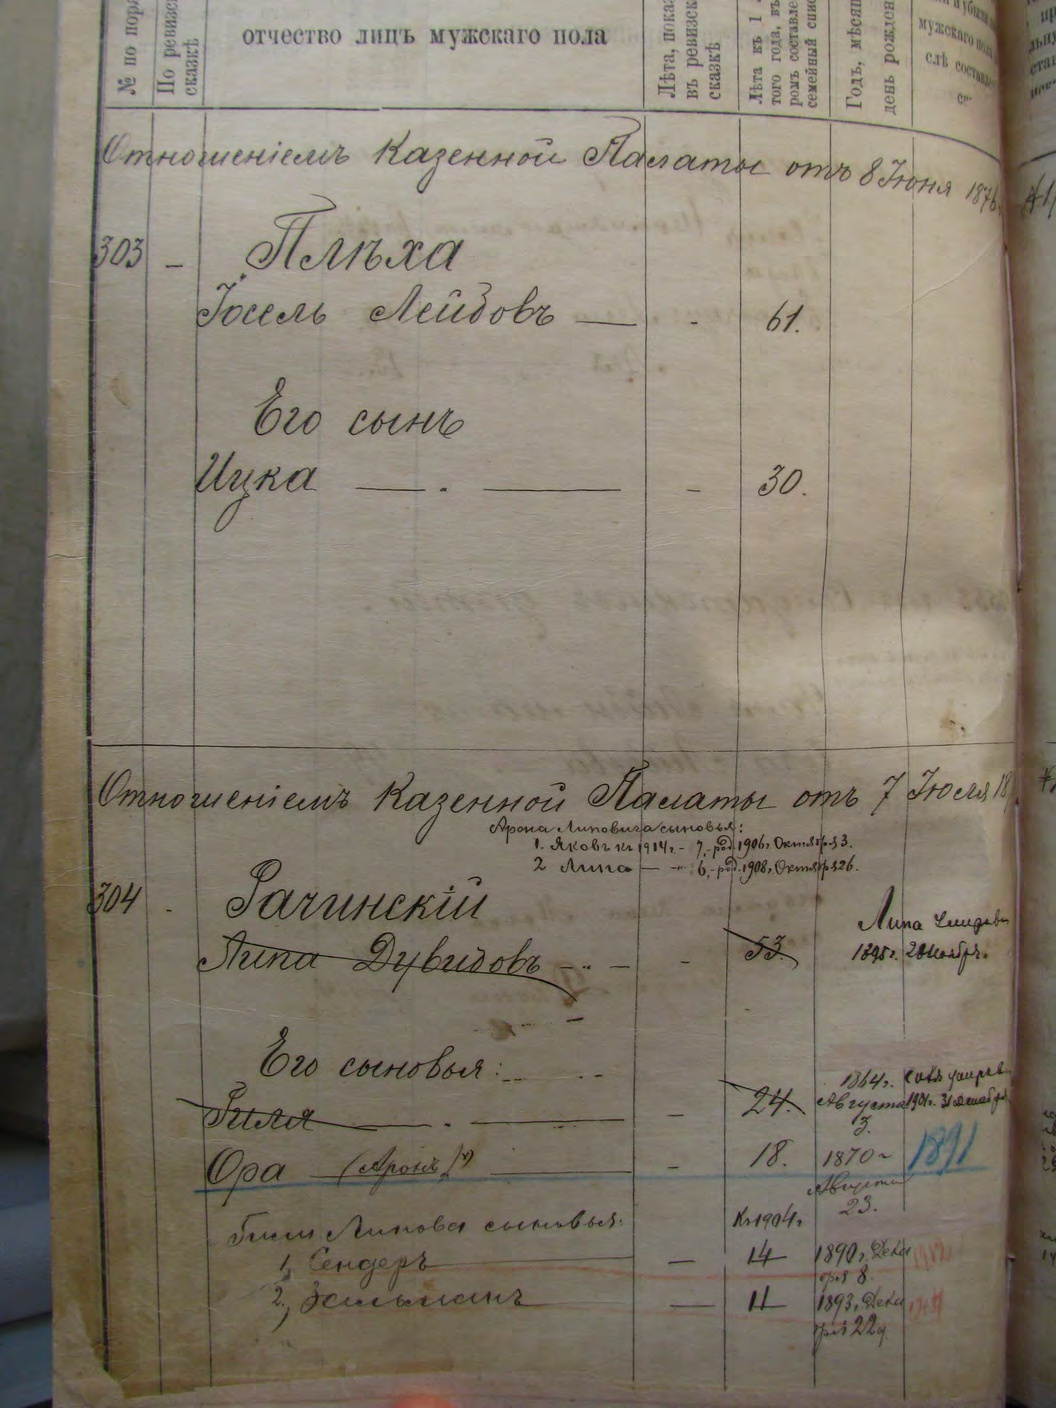 № по поря
По ревизс
сказкѣ
отчество лицъ мужскаго пола
Лѣта, пока
въ ревизск
сказкѣ
Лѣта къ 1
того года, въ
ромъ составле
семейный спис
Годъ, мѣся
день рожден
мужскаго пола
слѣ составле
Отношеніемъ Казенной Палаты отъ 8 Іюня 1876
303 — Плѣха
Іосель Лейбовъ — - 61.
Его сынъ
Ицка — . — - 30.
Отношеніемъ Казенной Палаты отъ 7 Іюля 18
Арона Липовича сыновья:
1. Яковъ къ 1914 г. - 7, - род. 1906 г. Октября 3.
2 Липа — - " 6, - род. 1908 г. Октября 26.
304 - Рачинскій
Липа
Липа Дувидовъ - 53.
1895 г. 28 Ноябр.
Его сыновья:
Гиля — . — - 24. 1864 г. Августа 3.
1901 г. 31 декабря
Ора — (Аронъ) — - 18. 1870 г. Августа 23.
1891
Гили Липова сыновья: Къ 1904 г.
1, Сендеръ — 14 1890, Дека
бря 8.
2, Зельманъ — 11 1893, Дека
бря 22 д.